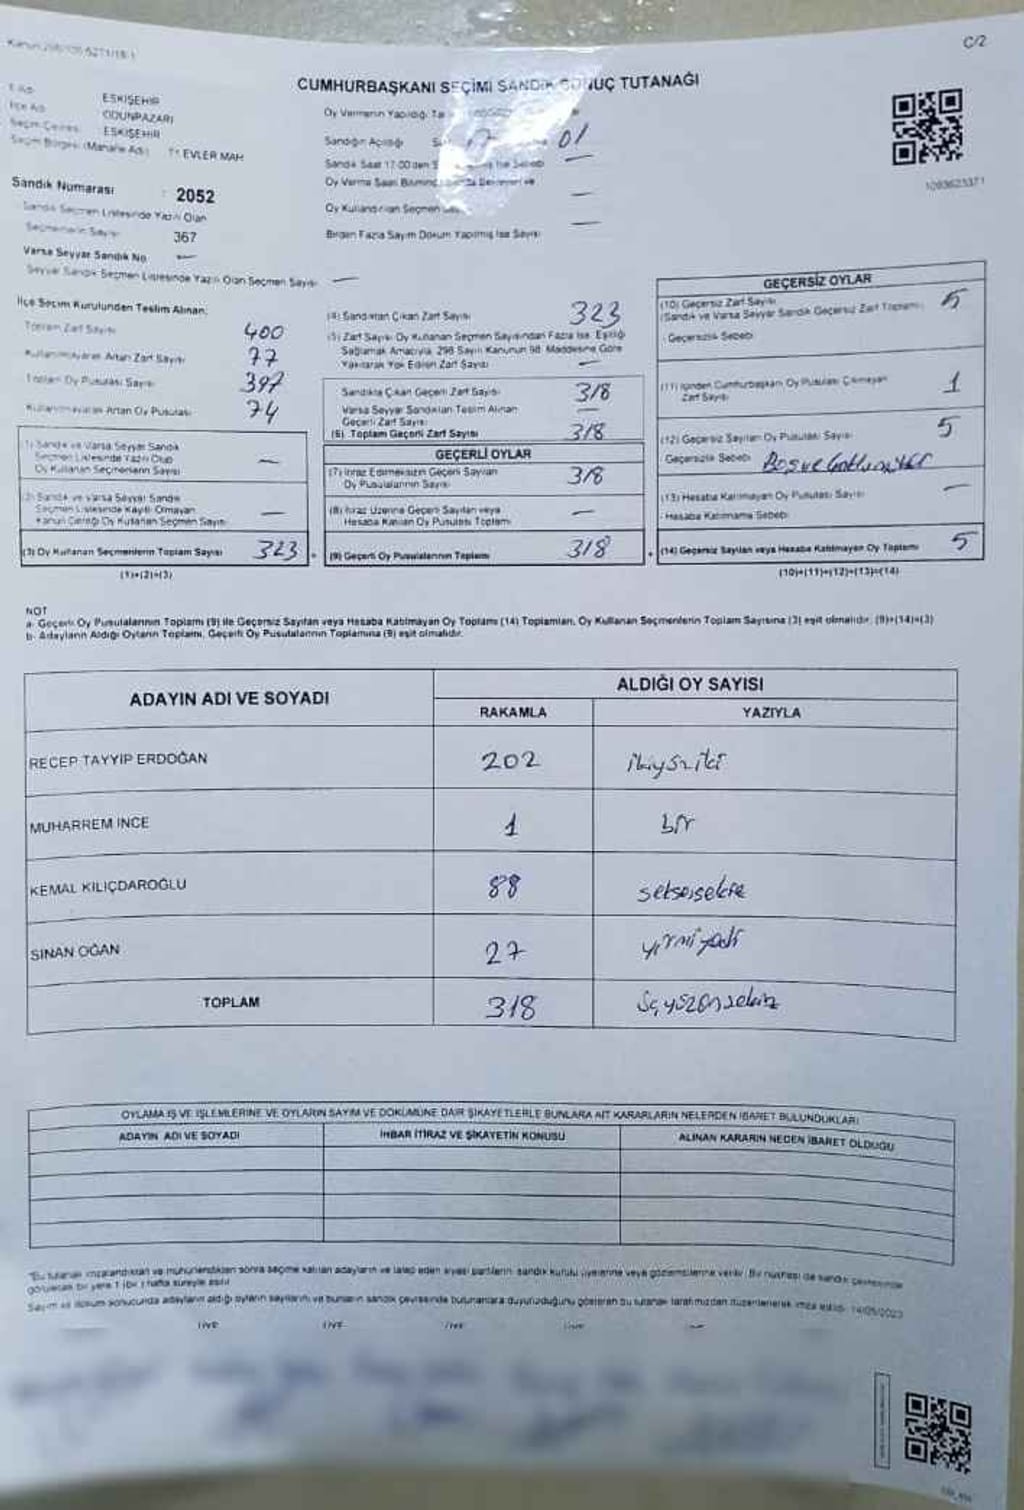 C/2
CUMHURBAŞKANI SEÇİMİ SANDIK SONUÇ TUTANAĞI
ESKİŞEHİR
ODUNPAZARI
ESKİŞEHİR
Seçim Bölgesi (Mahalle Adı) 71 EVLER MAH
Sandık Numarası : 2052
Sandık Seçmen Listesinde Yazılı Olan
Seçmenlerin Sayısı 367
Varsa Seyyar Sandık No —
Seyyar Sandık Seçmen Listesinde Yazılı Olan Seçmen Sayısı —
Oy Vermenin Yapıldığı
Sandığın Açıldığı 01
Sandık Saat 17:00'den
Oy Kullandırılan Seçmen —
Birden Fazla Sayım Döküm Yapılmış İse Sayısı —
1093623371
İlçe Seçim Kurulundan Teslim Alınan;
Toplam Zarf Sayısı 400
Kullanılmayarak Artan Zarf Sayısı 77
Toplam Oy Pusulası Sayısı 397
Kullanılmayarak Artan Oy Pusulası 74
(1) Sandık ve Varsa Seyyar Sandık
Seçmen Listesinde Yazılı Olup
Oy Kullanan Seçmenlerin Sayısı —
(2) Sandık ve Varsa Seyyar Sandık
Seçmen Listesinde Kayıtlı Olmayan
Kanun Gereği Oy Kullanan Seçmen Sayısı —
(3) Oy Kullanan Seçmenlerin Toplam Sayısı 323
(1)+(2)=(3)
(4) Sandıktan Çıkan Zarf Sayısı 323
(5) Zarf Sayısı Oy Kullanan Seçmen Sayısından Fazla İse, Eşitliği
Sağlamak Amacıyla, 298 Sayılı Kanunun 98. Maddesine Göre
Yakılarak Yok Edilen Zarf Sayısı —
Sandıkta Çıkan Geçerli Zarf Sayısı 318
Varsa Seyyar Sandıktan Teslim Alınan
Geçerli Zarf Sayısı —
(6) Toplam Geçerli Zarf Sayısı 318
GEÇERLİ OYLAR
(7) İtiraz Edilmeksizin Geçerli Sayılan
Oy Pusulalarının Sayısı 318
(8) İtiraz Üzerine Geçerli Sayılan veya
Hesaba Katılan Oy Pusulası Toplamı —
(9) Geçerli Oy Pusulalarının Toplamı 318
GEÇERSİZ OYLAR
(10) Geçersiz Zarf Sayısı
(Sandık ve Varsa Seyyar Sandık Geçersiz Zarf Toplamı) 5
Geçersizlik Sebebi
(11) İçinden Cumhurbaşkanı Oy Pusulası Çıkmayan
Zarf Sayısı 1
(12) Geçersiz Sayılan Oy Pusulası Sayısı 5
Geçersizlik Sebebi
(13) Hesaba Katılmayan Oy Pusulası Sayısı —
Hesaba Katılmama Sebebi
(14) Geçersiz Sayılan veya Hesaba Katılmayan Oy Toplamı 5
(10)+(11)+(12)+(13)=(14)
NOT
a- Geçerli Oy Pusulalarının Toplamı (9) ile Geçersiz Sayılan veya Hesaba Katılmayan Oy Toplamı (14) Toplamları, Oy Kullanan Seçmenlerin Toplam Sayısına (3) eşit olmalıdır. (9)+(14)=(3)
b- Adayların Aldığı Oyların Toplamı, Geçerli Oy Pusulalarının Toplamına (9) eşit olmalıdır.
ADAYIN ADI VE SOYADI ALDIĞI OY SAYISI
RAKAMLA YAZIYLA
RECEP TAYYİP ERDOĞAN 202 ikiyüziki
MUHARREM İNCE 1 bir
KEMAL KILIÇDAROĞLU 88 seksensekiz
SİNAN OĞAN 27 yirmiyedi
TOPLAM 318 üçyüzonsekiz
OYLAMA İŞ VE İŞLEMLERİNE VE OYLARIN SAYIM VE DÖKÜMÜNE DAİR ŞİKAYETLERLE BUNLARA AİT KARARLARIN NELERDEN İBARET BULUNDUKLARI
ADAYIN ADI VE SOYADI İHBAR İTİRAZ VE ŞİKAYETİN KONUSU ALINAN KARARIN NEDEN İBARET OLDUĞU
*Bu tutanak imzalandıktan ve mühürlendikten sonra seçime katılan adayların ve talep eden siyasi partilerin sandık kurulu üyelerine veya gözlemcilerine verilir. Bir nüshası da sandık çevresinde
görülecek bir yere 1 (bir) hafta süreyle asılır
Sayım ve döküm sonucunda adayların aldığı oyların sayılarını ve bunların sandık çevresinde bulunanlara duyurulduğunu gösteren bu tutanak tarafımızdan düzenlenerek imza edildi. 14/05/2023
ÜYE ÜYE ÜYE ÜYE